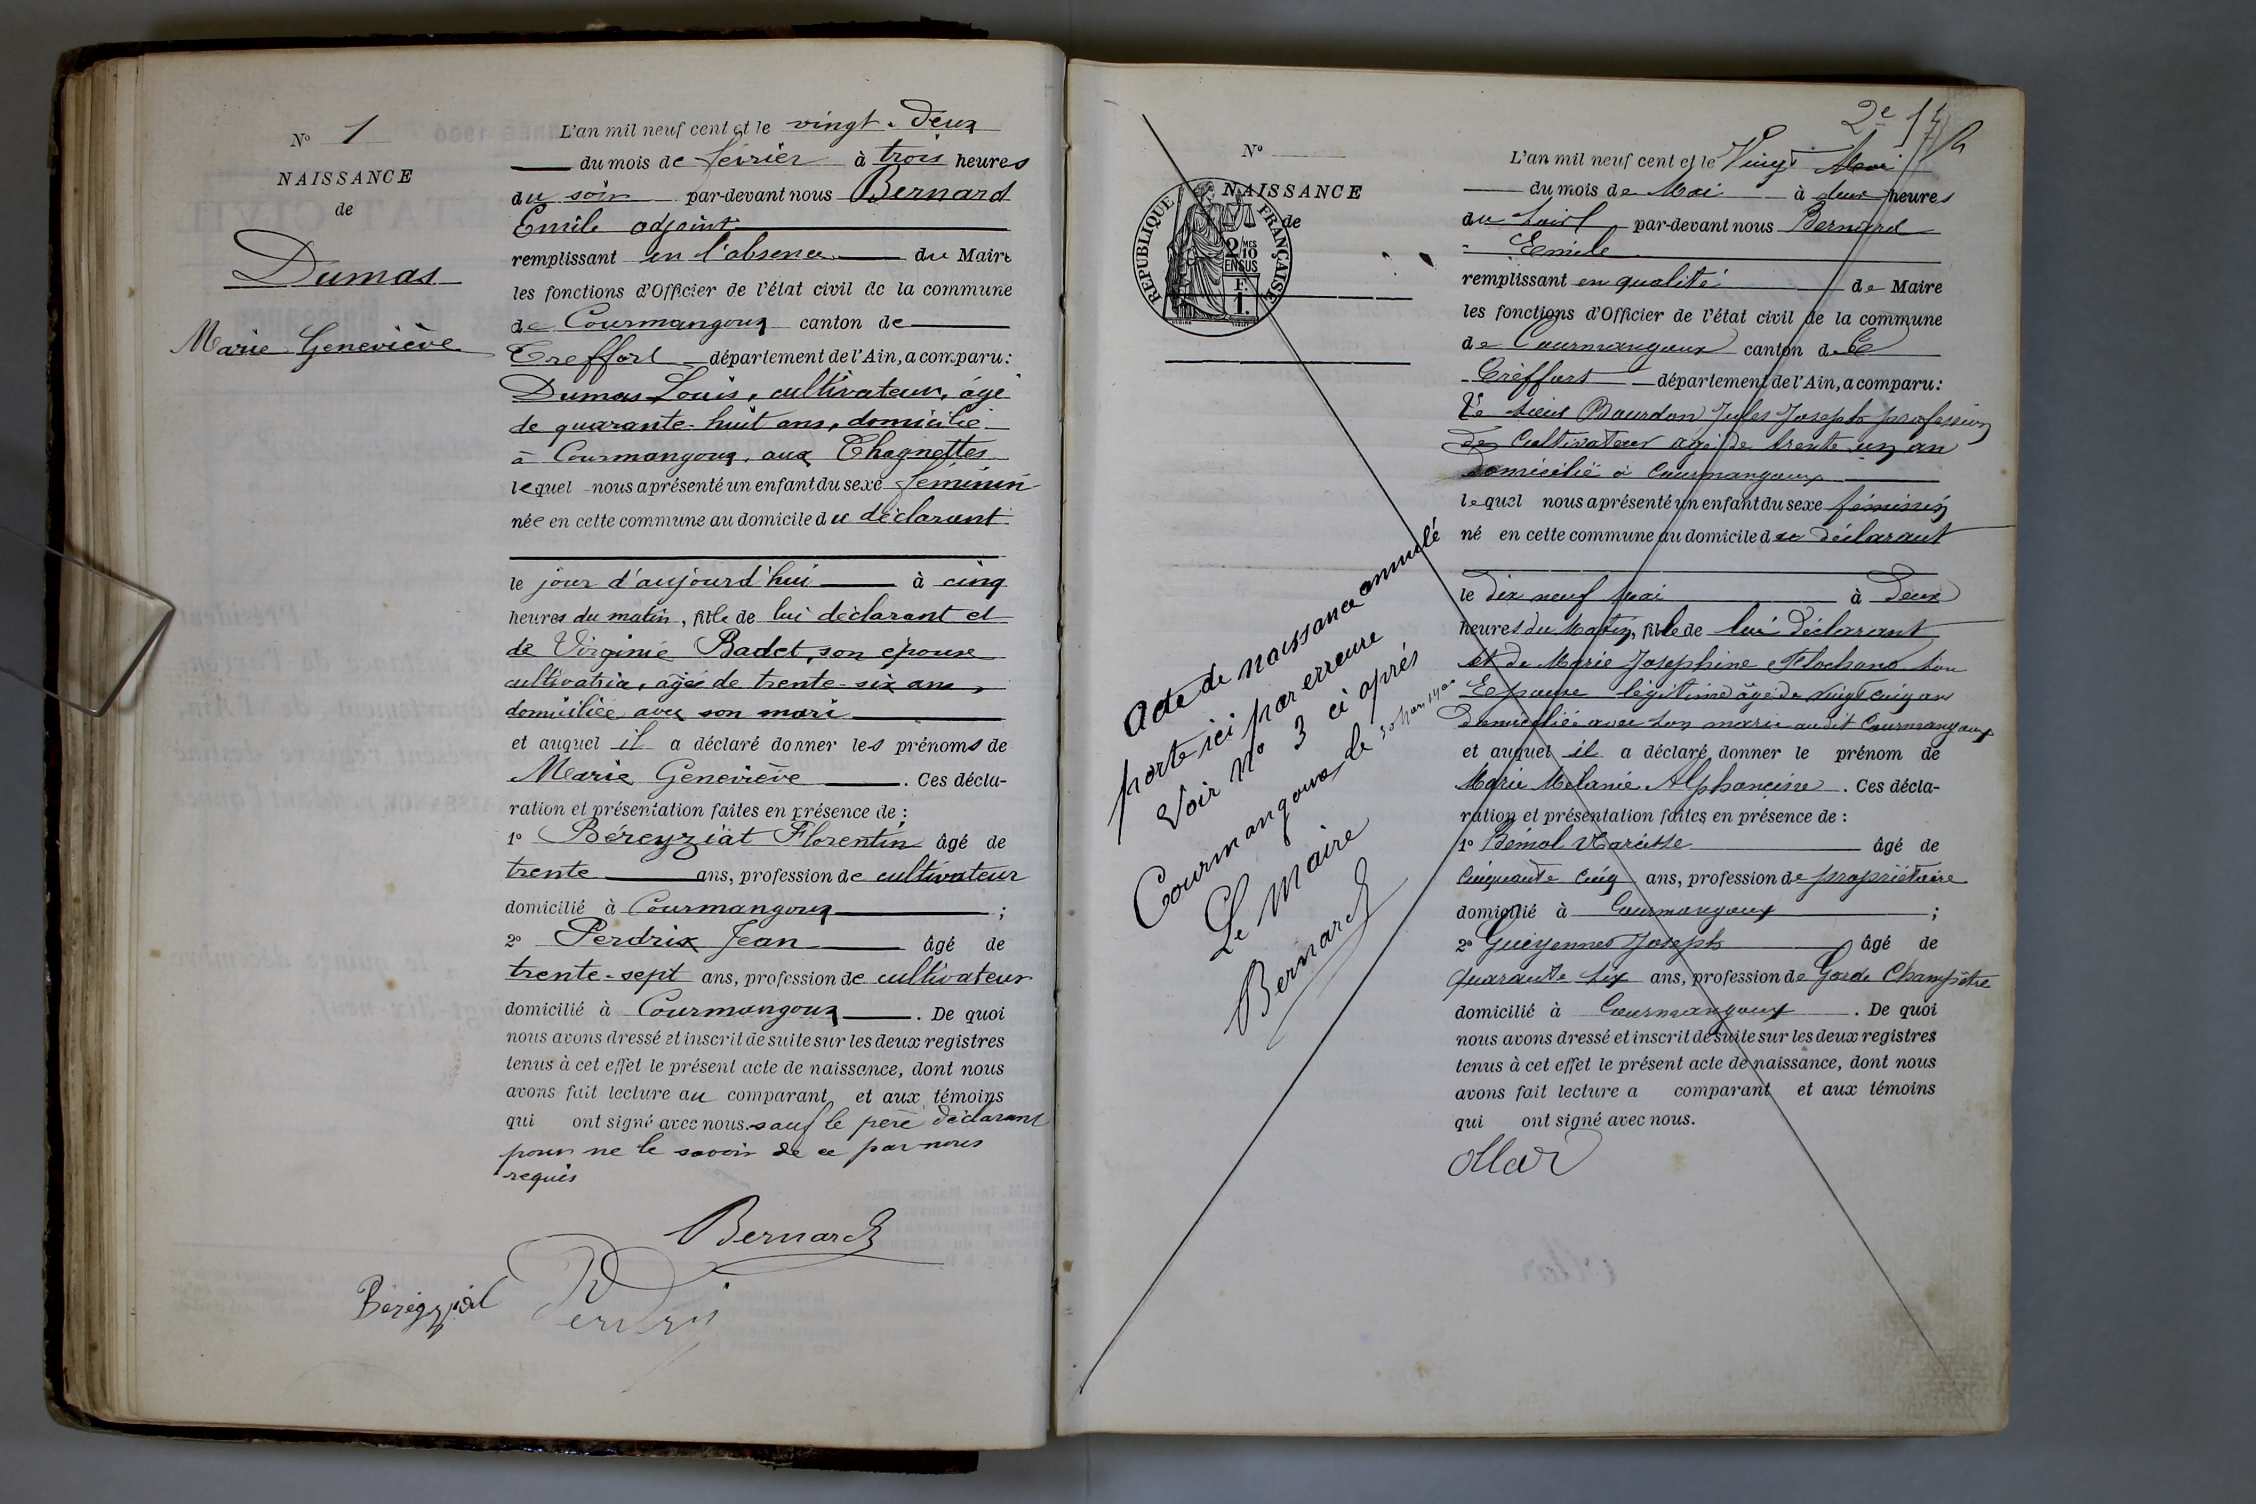 Nº 1
NAISSANCE
de
Dumas
Marie Geneviève
L'an mil neuf cent et le vingt-deux
du mois de février à trois heures
du soir par-devant nous Bernard
Emile adjoint
remplissant en l'absence du Maire
les fonctions d'Officier de l'état civil de la commune
de Courmangoux canton de
Treffort département de l'Ain, a comparu:
Dumas Louis, cultivateur, âgé
de quarante-huit ans, domicilié
à Courmangoux, aux Chagnettes
lequel nous a présenté un enfant du sexe féminin
née en cette commune au domicile du déclarant
le jour d'aujourd'hui à cinq
heures du matin, fille de lui déclarant et
de Virginie Badet, son épouse
cultivatrice, âgée de trente-six ans,
domiciliée avec son mari
et auquel il a déclaré donner les prénoms de
Marie Geneviève. Ces décla-
ration et présentation faites en présence de :
1º Béreyziat Florentin âgé de
trente ans, profession de cultivateur
domicilié à Courmangoux ;
2º Perdrix Jean âgé de
trente-sept ans, profession de cultivateur
domicilié à Courmangoux. De quoi
nous avons dressé et inscrit de suite sur les deux registres
tenus à cet effet le présent acte de naissance, dont nous
avons fait lecture au comparant et aux témoins
qui ont signé avec nous. sauf le père déclarant
pour ne le savoir de ce par nous
requis
Bernard
Béreyziat Perdrix
2e
Nº
NAISSANCE
de
REPUBLIQUE FRANÇAISE
2/10
MES
EN SUS
F.
1.
acte de naissance annulé
porté ici par erreure
Voir Nº 3 ci après
Courmangoux le 20 Mai 1900
Le Maire
Bernard
L'an mil neuf cent et le Vingt Mai
du mois de Mai à deux heures
du Soir par-devant nous Bernard
Emile
remplissant en qualité de Maire
les fonctions d'Officier de l'état civil de la commune
de Courmangoux canton de
Treffort département de l'Ain, a comparu:
Le sieur Bourdon Jules Joseph profession
de Cultivateur agé de trente un an
domicilié à Courmangoux
lequel nous a présenté un enfant du sexe féminin
né en cette commune au domicile du déclarant
le dix neuf Mai à Deux
heures du Matin, fille de lui Déclarant
et de Marie Josephine son
Epouse légitime âgée de vingt cinq ans
domiciliée avec son marie audit Courmangoux
et auquel il a déclaré donner le prénom de
Marie Melanie Alphonsine. Ces décla-
ration et présentation faites en présence de :
1º Bémol Narcisse âgé de
Cinquante cinq ans, profession de propriétaire
domicilié à Courmangoux ;
2º Guiyennet Joseph âgé de
quarante six ans, profession de Garde Champêtre
domicilié à Courmangoux. De quoi
nous avons dressé et inscrit de suite sur les deux registres
tenus à cet effet le présent acte de naissance, dont nous
avons fait lecture a comparant et aux témoins
qui ont signé avec nous.